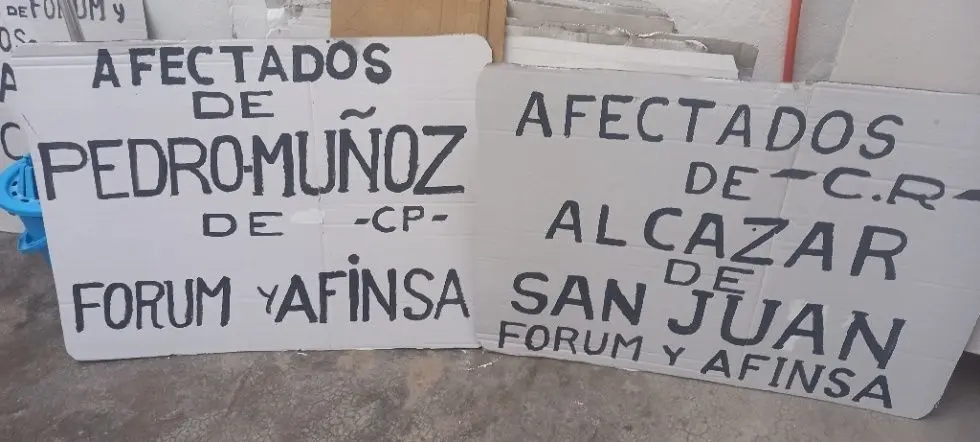 DE FORUM y
OS
A
C
AFECTADOS
DE
PEDRO-MUÑOZ
DE -CP-
FORUM Y AFINSA
AFECTADOS
DE -C.R-
ALCAZAR
DE
SAN JUAN
FORUM Y AFINSA